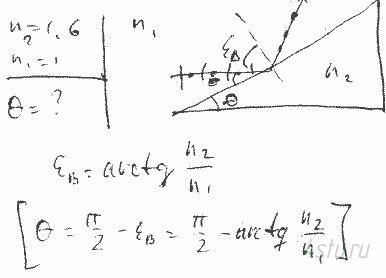 n₂=1,6
n₁=1
θ=?
n₁
ε_B
n₂
θ
ε_B = arctg n₂/n₁
[θ = π/2 - ε_B = π/2 - arctg n₂/n₁]
4stu.ru